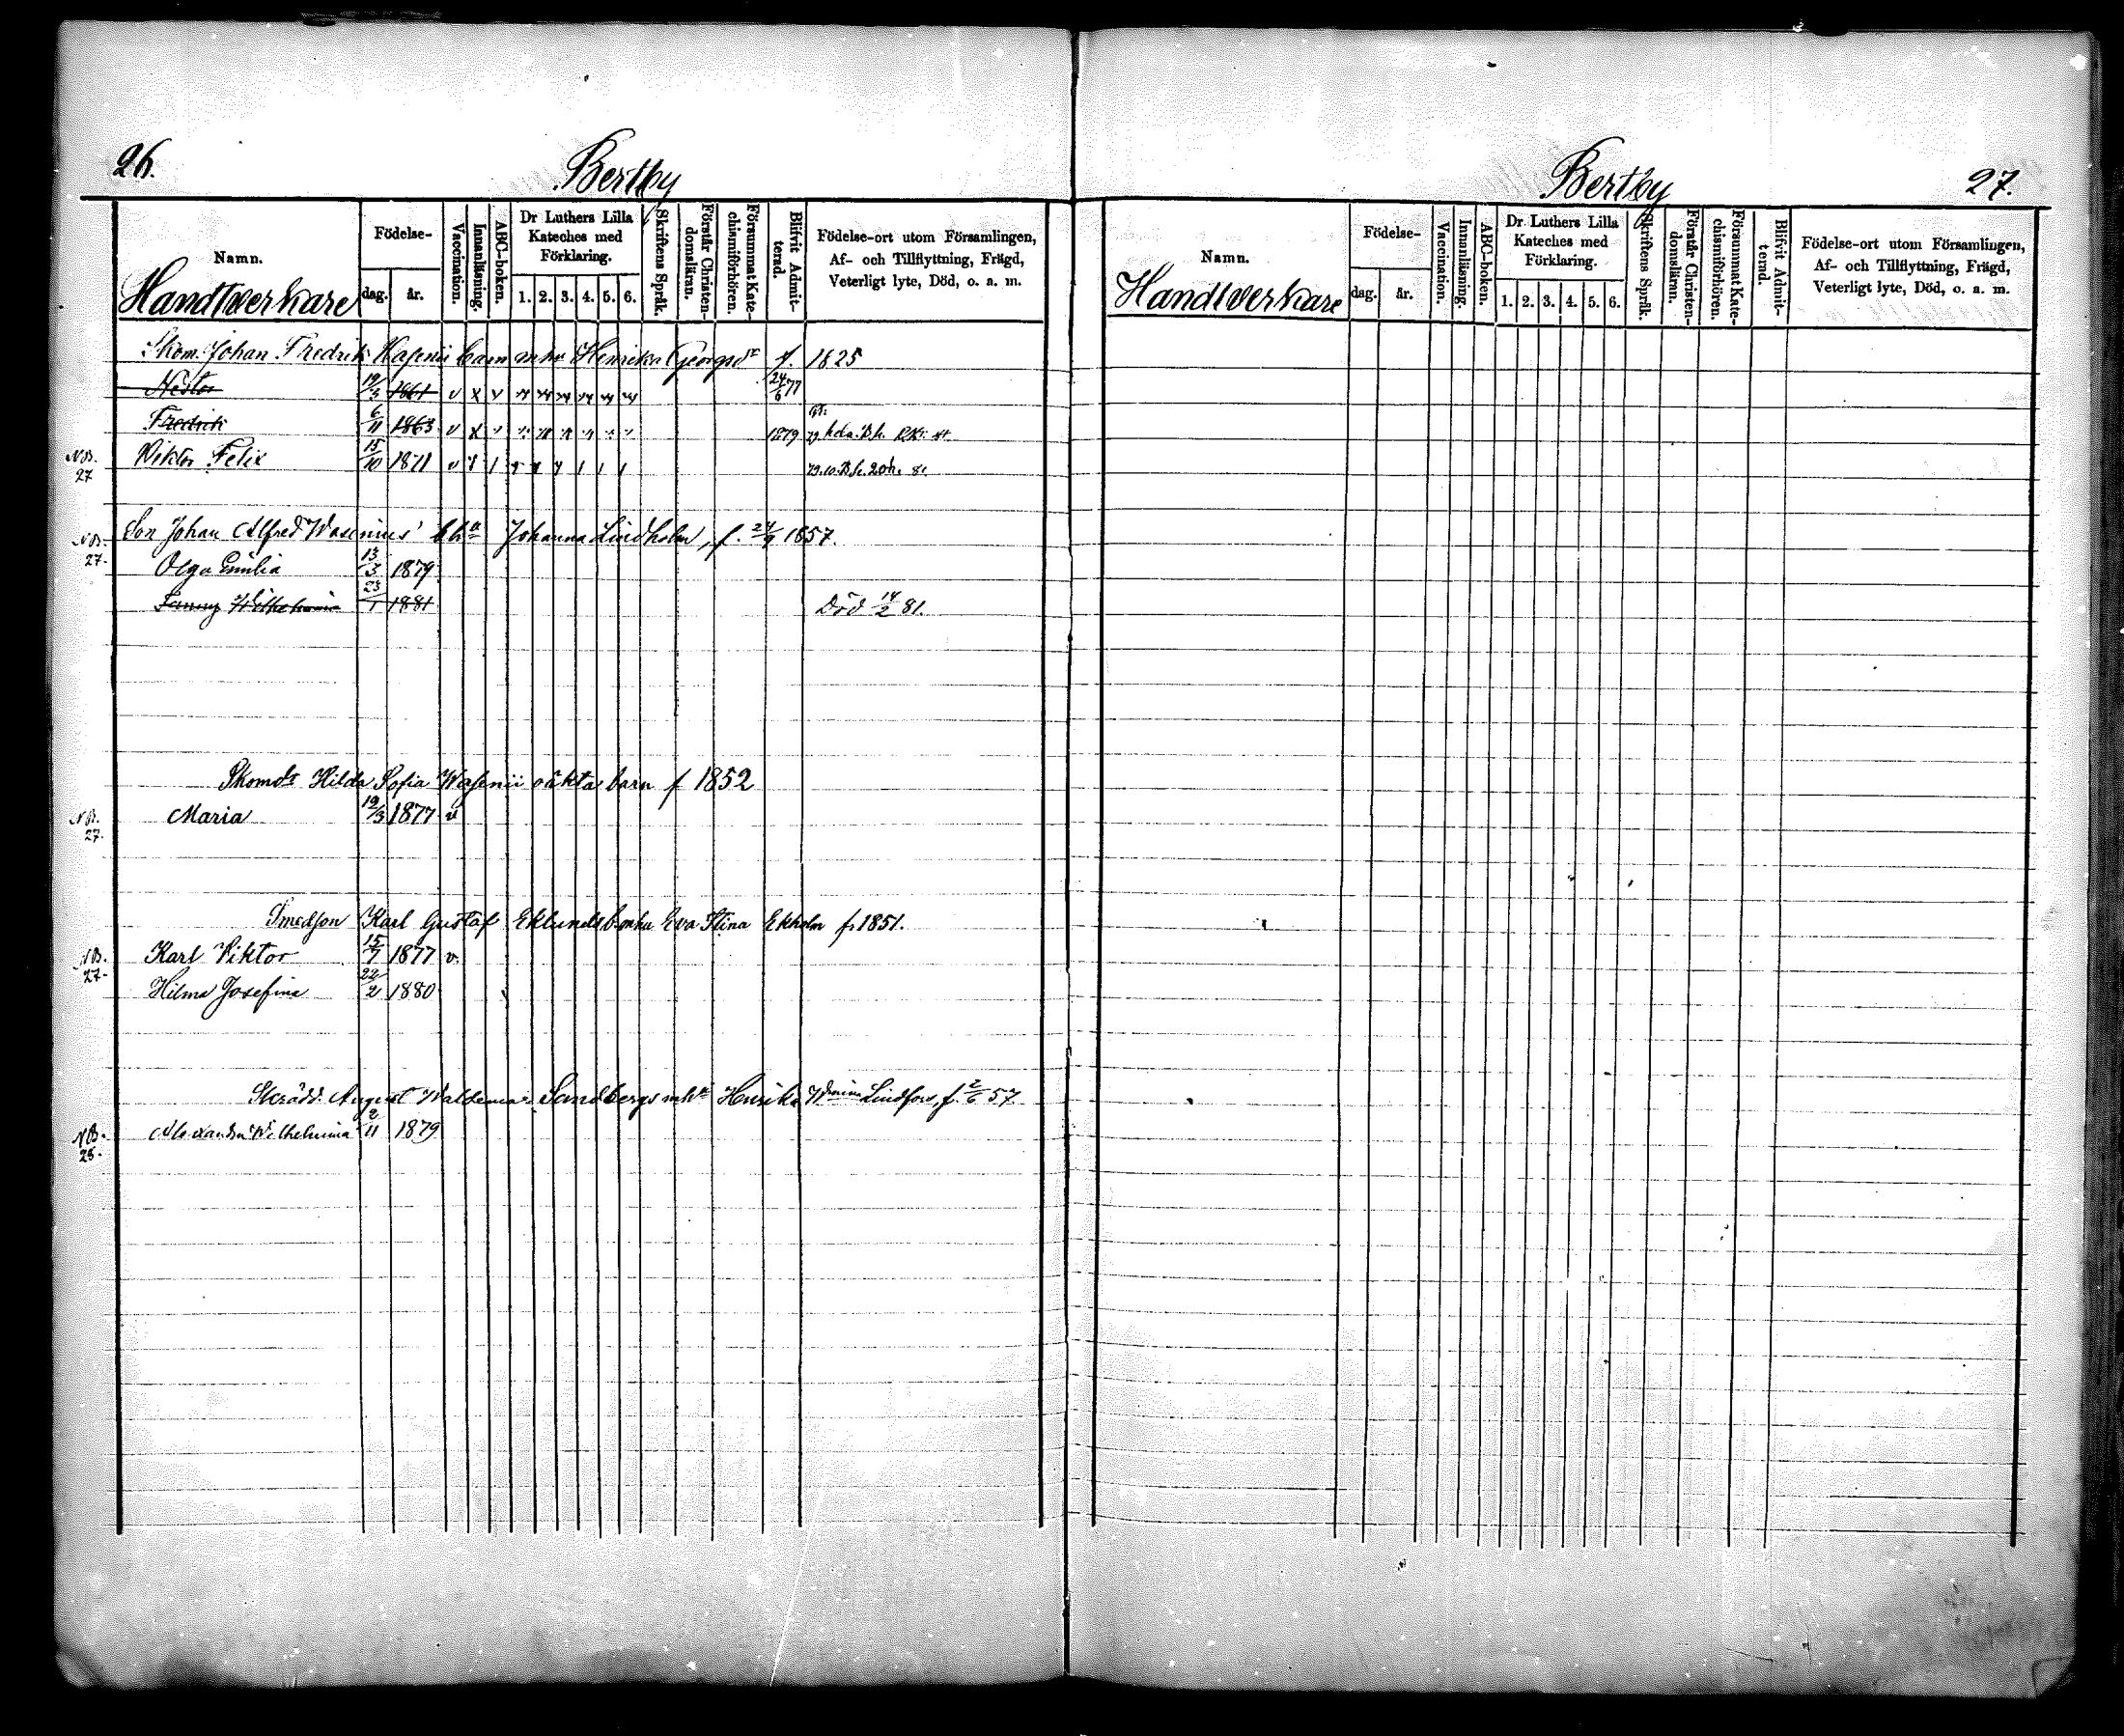 26.
Bertby
Namn.
Handtverkare
Födelse-
dag. år.
Vaccination.
Innanläsning.
ABC-boken.
Dr Luthers Lilla
Kateches med
Förklaring.
1. 2. 3. 4. 5. 6.
Skriftens Språk.
Förstår Christen-
domsläran.
Försummat Kate-
chismiförhören.
Blifvit Admit-
terad.
Födelse-ort utom Församlingen,
Af- och Tillflyttning, Frägd,
Veterligt lyte, Död, o. a. m.
Skom. Johan Fredrik barn Henrika Georgsdr f. 1825
Nestor 19/3 1861 v x v 24/6 77
Fredrik 6/11 1863 v x 1879
NB. 27 Viktor Felix 15/10 1871
NB. 27. Son Johan Alfred Wasenius' Johanna Lindholm, f. 24/9 1857.
Olga Emilia 13/3 1879
Fanny Wilhelmina 23/1 1881 Död 14/2 81.
Hilda Sofia Wasenii oäkta barn f 1852
NB. 27. Maria 19/3 1877 v
Smedson Karl Gustaf Eklunds Eva Stina Ekholm f. 1851.
NB. 27. Karl Viktor 15/7 1877 v.
Hilma Josefina 22/2 1880
Skrädd. August Waldemar Sandbergs Henrika Lindfors, f. 2/6 57
NB. 28. Alexandra Wilhelmina 2/11 1879
Bertby
27.
Namn.
Handtverkare
Födelse-
dag. år.
Vaccination.
Innanläsning.
ABC-boken.
Dr Luthers Lilla
Kateches med
Förklaring.
1. 2. 3. 4. 5. 6.
Skriftens Språk.
Förstår Christen-
domsläran.
Försummat Kate-
chismiförhören.
Blifvit Admit-
terad.
Födelse-ort utom Församlingen,
Af- och Tillflyttning, Frägd,
Veterligt lyte, Död, o. a. m.